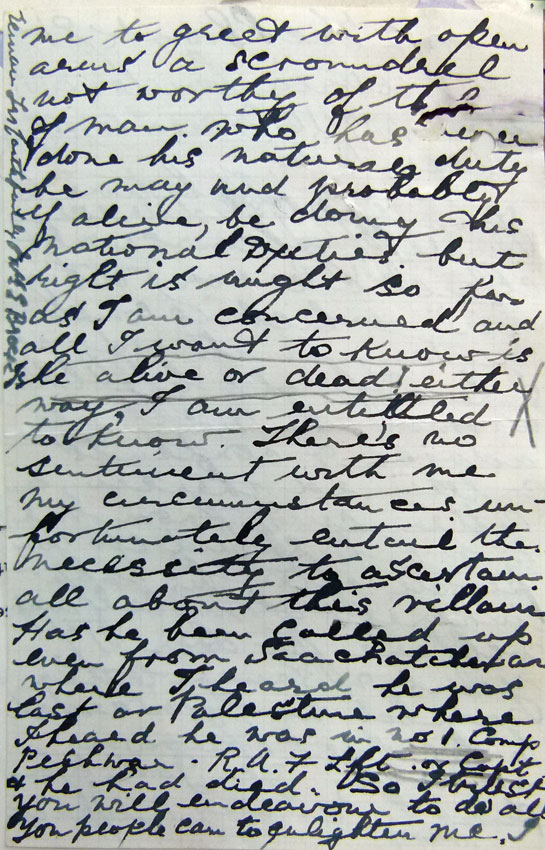 me to greet with open
arms a scroundrel
not worthy of the
of man. who has never
done his natural duty
he may and probably
if alive, be doing his
national Duties. but
right is might so far
as I am concerned and
all I want to know is
he alive or dead, either
way, I am entittled
to know. There's no
sentiment with me
my circumstances un-
fortunately entail the
necessity to ascertain
all about this villain
Has he been called up
even from
where I heard he was
last or Palestine where
I heard he was in no 1. Comp
R.A.F Lft. or Capt
& he had died. So I
you will endeavour to do all
you people can to enlighten me.